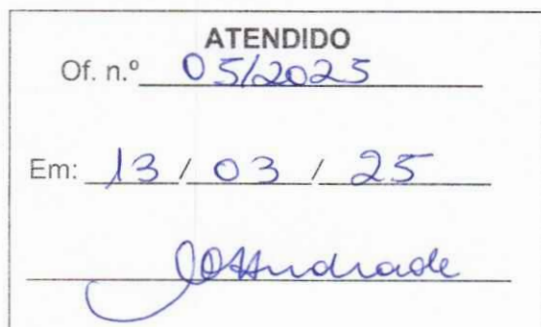 ATENDIDO
Of. n.º 05/2025
Em: 13 / 03 / 25
Andrade